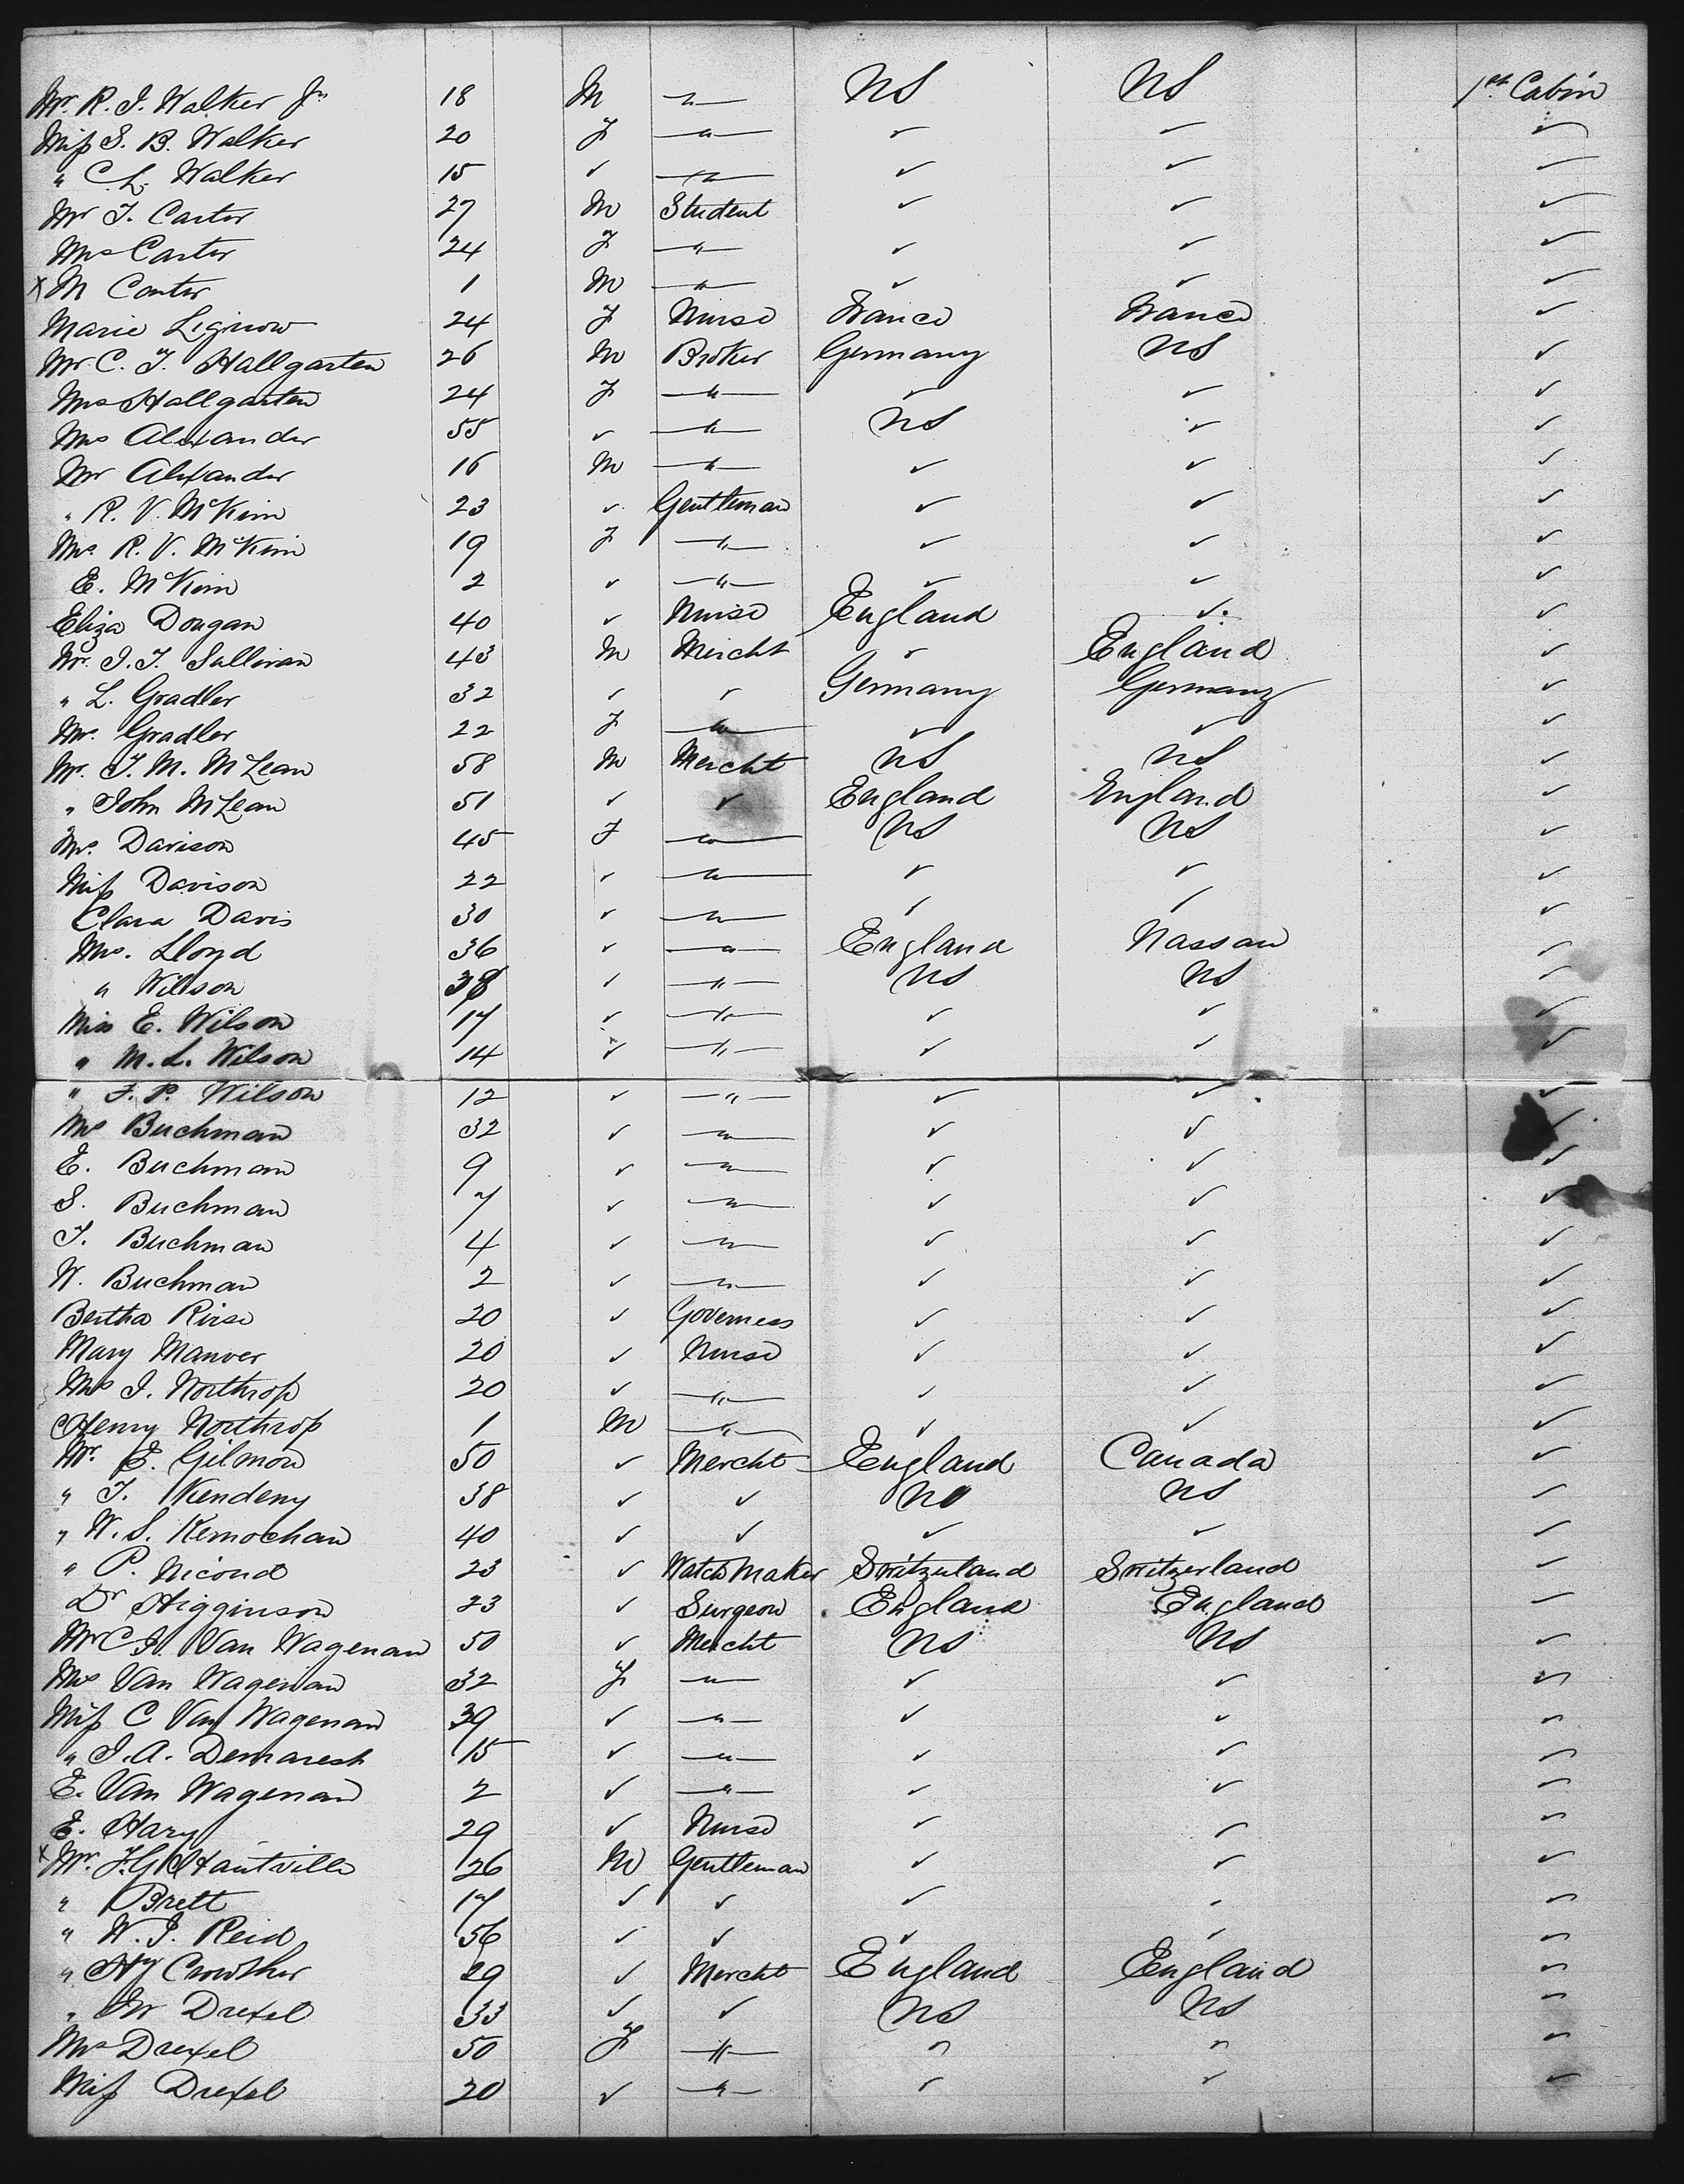 Mr. R. J. Walker Jr 18 M —"— US US 1st Cabin
Miss S. B. Walker 20 F —"— ✓ ✓ ✓
" C. L. Walker 15 ✓ —"— ✓ ✓ ✓
Mr J. Carter 27 M Student ✓ ✓ ✓
Mrs Carter 24 F —"— ✓ ✓ ✓
x M Carter 1 M —"— ✓ ✓ ✓
Marie 24 F Nurse France France ✓
Mr C. T. Hallgarten 26 M Broker Germany US ✓
Mrs Hallgarten 24 F —"— ✓ ✓ ✓
Mrs Alexander 55 ✓ —"— US ✓ ✓
Mr Alexander 16 M —"— ✓ ✓ ✓
" R. V. McKim 23 ✓ Gentleman ✓ ✓ ✓
Mrs R. V. McKim 19 F —"— ✓ ✓ ✓
E. McKim 2 ✓ —"— ✓ ✓ ✓
Eliza Dongan 40 ✓ Nurse England ✓ ✓
Mr. J. T. Sullivan 43 M Mercht ✓ England ✓
" L. Gradler 32 ✓ ✓ Germany Germany ✓
Mrs. Gradler 22 F —"— ✓ ✓ ✓
Mr. J. M. McLean 58 M Mercht US US ✓
" John McLean 51 ✓ ✓ England England ✓
Mrs. Davison 45 F —"— US US ✓
Miss Davison 22 ✓ —"— ✓ ✓ ✓
Clara Davis 30 ✓ —"— ✓ ✓ ✓
Mrs. Lloyd 36 ✓ —"— England Nassau ✓
" Wilson 38 ✓ —"— US US ✓
Miss E. Wilson 17 ✓ —"— ✓ ✓ ✓
" M. L. Wilson 14 ✓ —"— ✓ ✓ ✓
" F. P. Wilson 12 ✓ —"— ✓ ✓ ✓
Mrs Buchman 32 ✓ —"— ✓ ✓ ✓
E. Buchman 9 ✓ —"— ✓ ✓ ✓
S. Buchman 7 ✓ —"— ✓ ✓ ✓
J. Buchman 4 ✓ —"— ✓ ✓ ✓
W. Buchman 2 ✓ —"— ✓ ✓ ✓
Bertha 20 ✓ Governess ✓ ✓ ✓
Mary Manver 20 ✓ Nurse ✓ ✓ ✓
Mrs J. Northrop 20 ✓ —"— ✓ ✓ ✓
Henry Northrop 1 M —"— ✓ ✓ ✓
Mr. E. Gilmon 50 ✓ Mercht England Canada ✓
" T. Kendeny 38 ✓ ✓ US US ✓
" W. S. Kernochan 40 ✓ ✓ ✓ ✓ ✓
" P. Nicoud 23 ✓ Watch Maker Switzerland Switzerland ✓
Dr Higginson 23 ✓ Surgeon England England ✓
Mr C. H. Van Wagenan 50 ✓ Mercht US US ✓
Mrs Van Wagenan 32 F —"— ✓ ✓ ✓
Miss C Van Wagenan 39 ✓ —"— ✓ ✓ ✓
" J. A. Demarest 15 ✓ —"— ✓ ✓ ✓
E. Van Wagenan 2 ✓ —"— ✓ ✓ ✓
E. Hary 29 ✓ Nurse ✓ ✓ ✓
x Mr. F. G. D'Hauteville 26 M Gentleman ✓ ✓ ✓
" Brett 17 ✓ ✓ ✓ ✓ ✓
" W. J. Reid 56 ✓ ✓ ✓ ✓ ✓
" Hy Crowther 29 ✓ Mercht England England ✓
" Mr Drexel 33 ✓ ✓ US US ✓
Mrs Drexel 50 F —"— " " ✓
Miss Drexel 20 ✓ —"— ✓ ✓ ✓